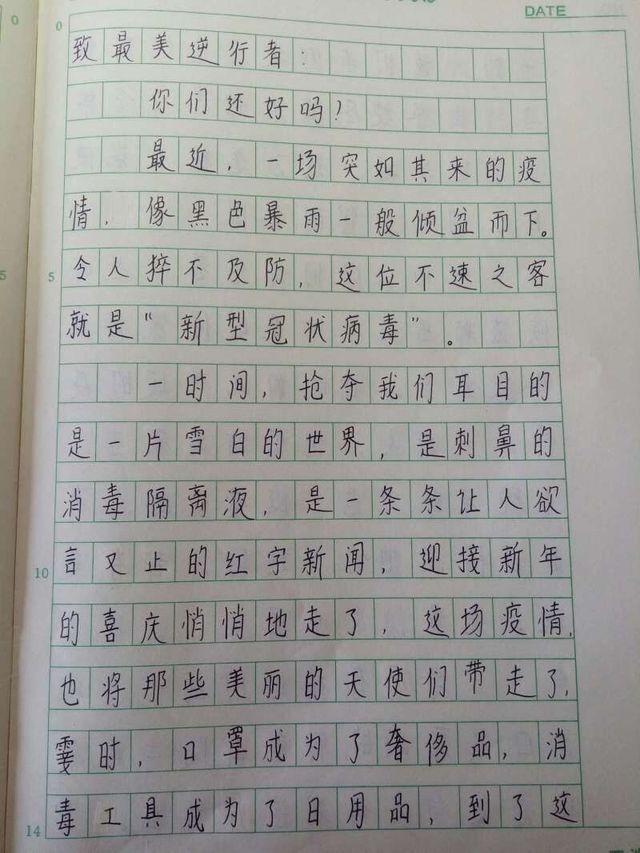 DATE
0
0
致最美逆行者：
你们还好吗！
最近，一场突如其来的疫
情，像黑色暴雨一般倾盆而下。
5
5
令人猝不及防，这位不速之客
就是“新型冠状病毒”。
一时间，抢夺我们耳目的
是一片雪白的世界，是刺鼻的
消毒隔离液，是一条条让人欲
10
言又止的红字新闻，迎接新年
的喜庆悄悄地走了，这场疫情，
也将那些美丽的天使们带走了，
霎时，口罩成为了奢侈品，消
14
毒工具成为了日用品，到了这